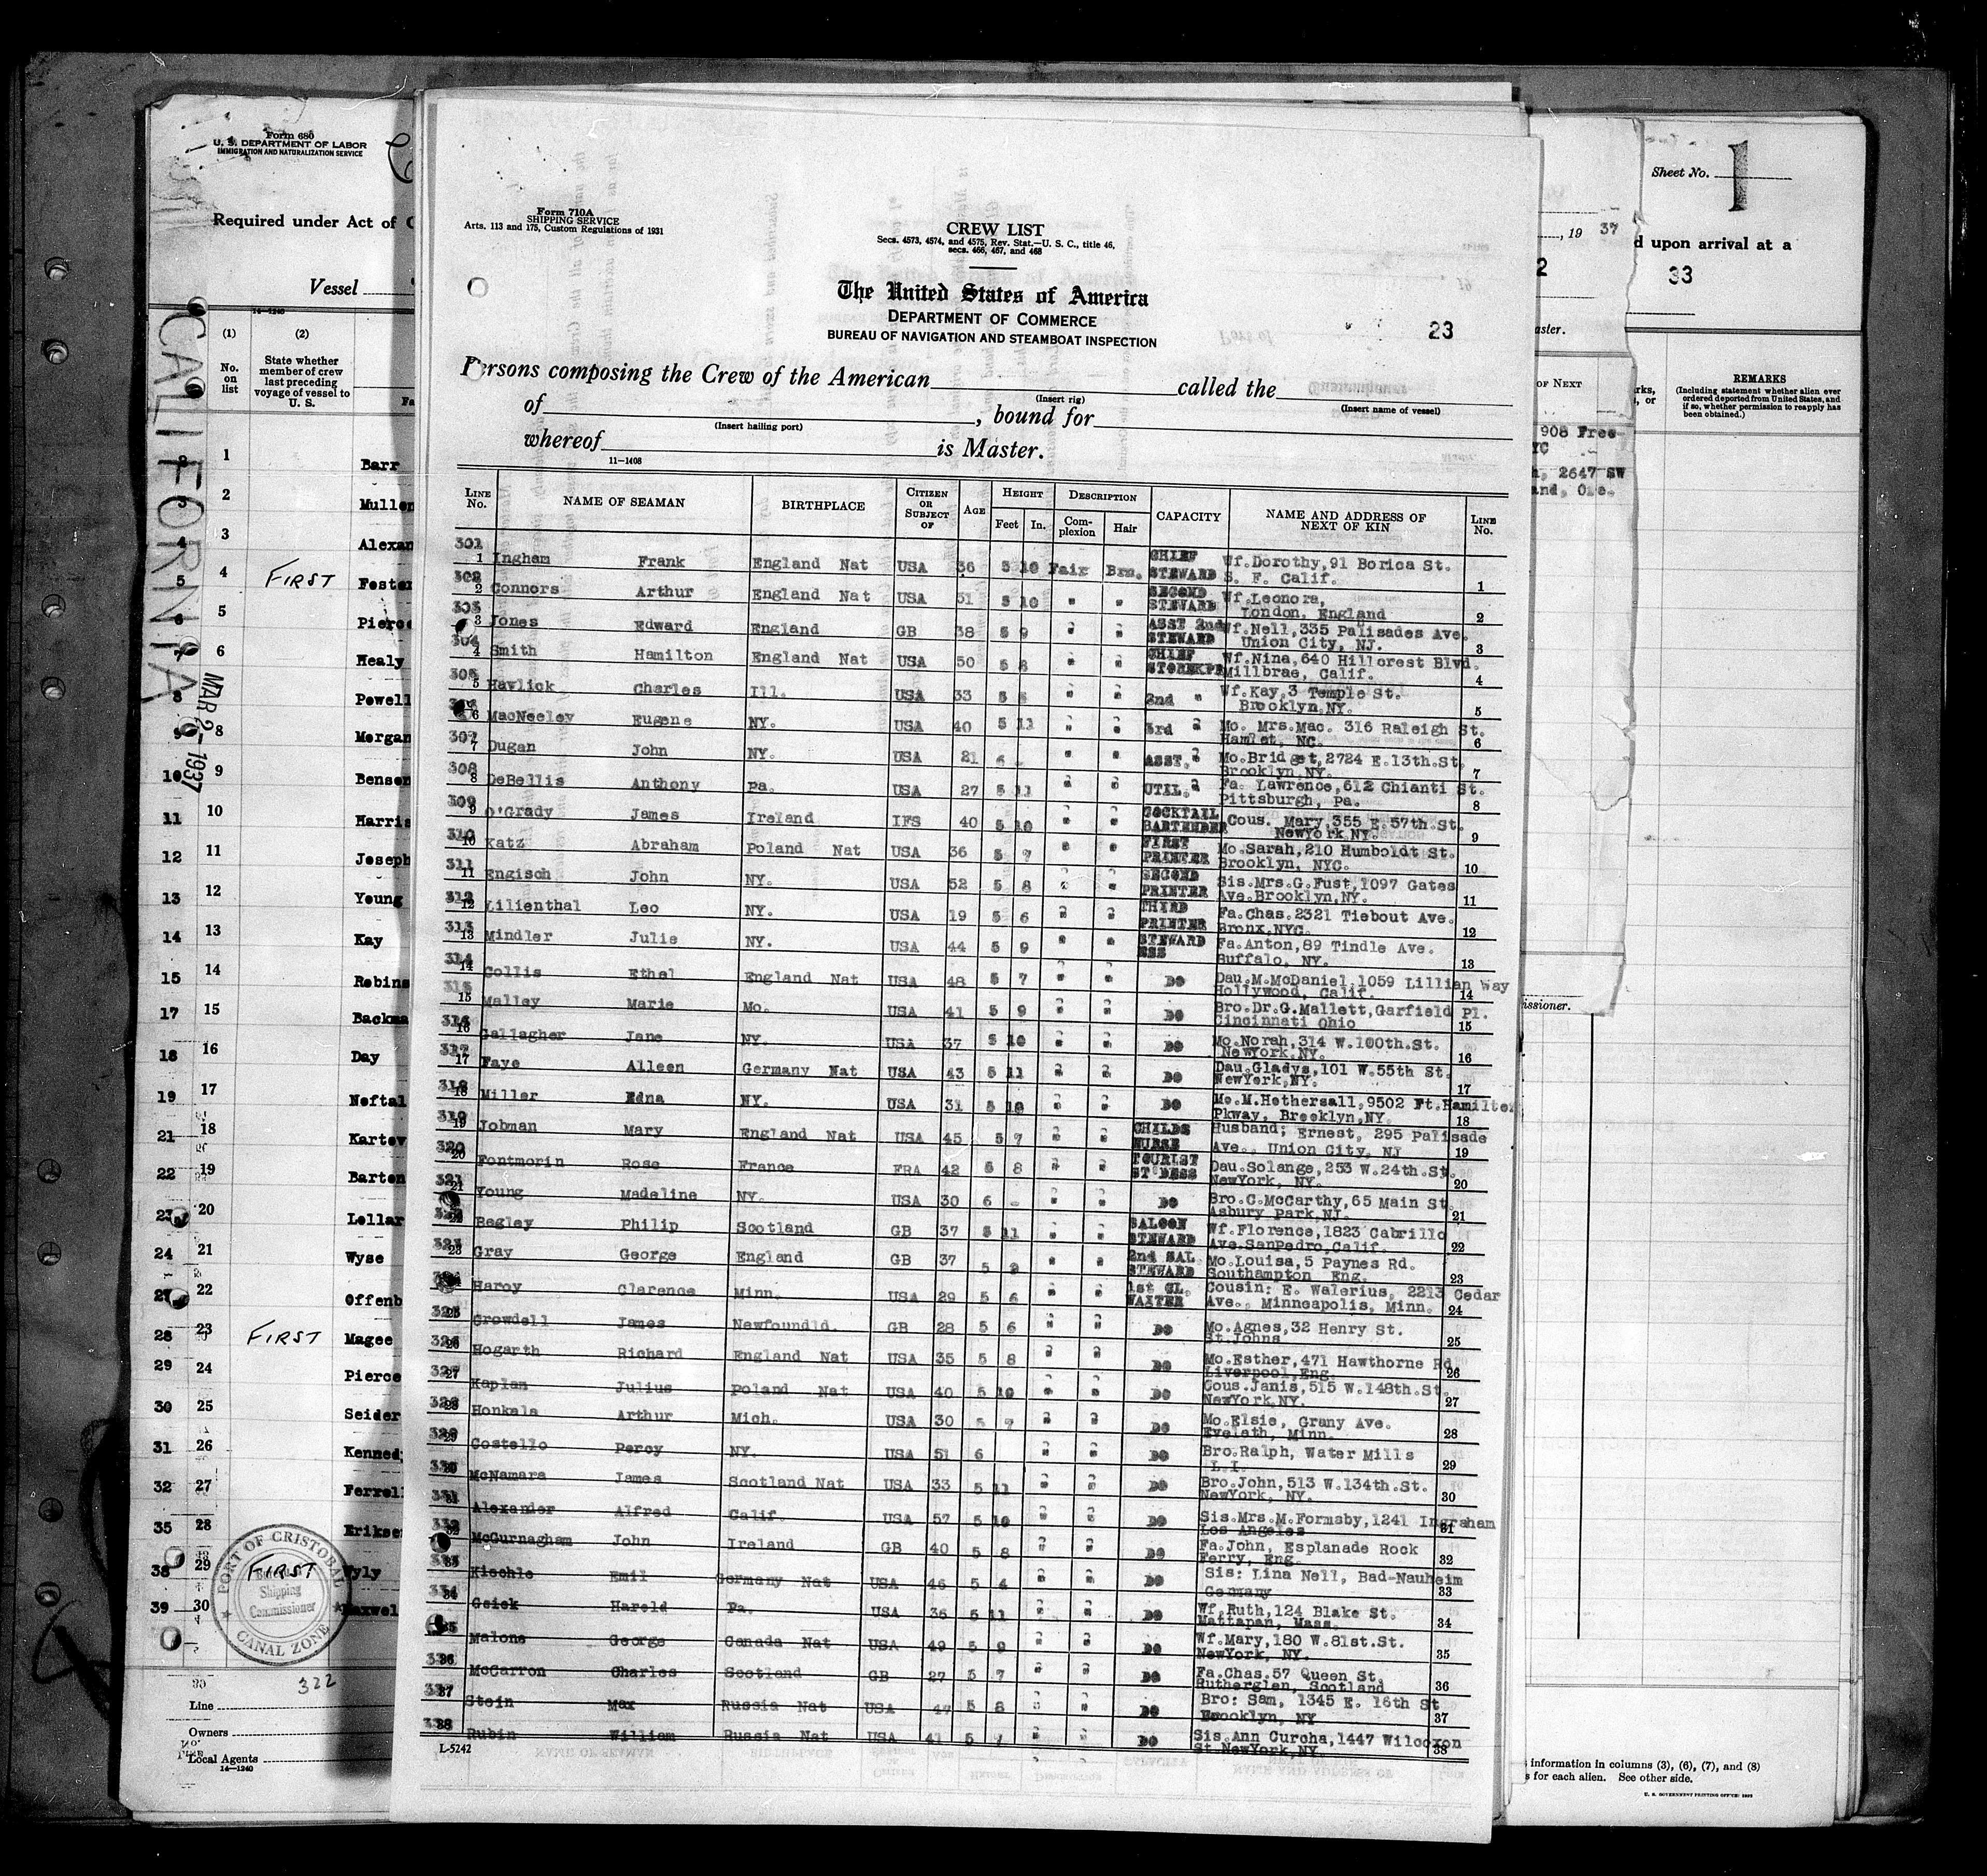 Form 680
U. S. DEPARTMENT OF LABOR
IMMIGRATION AND NATURALIZATION SERVICE
Required under Act of C
Vessel
14—1240
(1) (2)
No. on list
State whether member of crew last preceding voyage of vessel to U. S.
Fa
CALIFORNIA
MAR 2 - 1937
1 Barr
2 Mullen
3 Alexan
5 4 FIRST Foster
5 Pierce
6 Healy
8 7 Powell
8 Morgan
10 9 Benson
11 10 Harris
12 11 Joseph
13 12 Young
14 13 Kay
15 14 Robins
17 15 Backma
18 16 Day
19 17 Neftal
21 18 Kartev
22 19 Barten
20 Lellar
24 21 Wyse
22 Offenb
28 23 FIRST Magee
29 24 Pierce
30 25 Seider
31 26 Kenned
32 27 Ferrell
35 28 Erikse
38 29 FIRST Wyly
39 30 Maxwel
PORT OF CRISTOBAL
Shipping
Commissioner
CANAL ZONE
35 322
Line
Owners
Local Agents
14—1240
Form 710A
SHIPPING SERVICE
Arts. 113 and 175, Custom Regulations of 1931
CREW LIST
Secs. 4573, 4574, and 4575, Rev. Stat.—U. S. C., title 46,
secs. 466, 467, and 468
The United States of America
DEPARTMENT OF COMMERCE
BUREAU OF NAVIGATION AND STEAMBOAT INSPECTION
23
Persons composing the Crew of the American called the
(Insert rig) (Insert name of vessel)
of , bound for
(Insert hailing port)
whereof is Master.
11—1408
LINE No. NAME OF SEAMAN BIRTHPLACE CITIZEN OR SUBJECT OF AGE HEIGHT Feet In. DESCRIPTION Complexion Hair CAPACITY NAME AND ADDRESS OF NEXT OF KIN LINE No.
301
1 Ingham Frank England Nat USA 36 5 10 Fair Brn. CHIEF STEWARD Wf.Dorothy,91 Borica St. S. F. Calif. 1
302
2 Connors Arthur England Nat USA 31 5 10 " " SECOND STEWARD Wf.Leonora, London, England 2
303
3 Jones Edward England GB 38 5 9 " " ASST 2nd STEWARD Wf.Nell,335 Palisades Ave. Union City, NJ. 3
304
4 Smith Hamilton England Nat USA 50 5 8 " " CHIEF STOREKPR Wf.Nina,640 Hillcrest Blvd. Millbrae, Calif. 4
305
5 Havlick Charles Ill. USA 33 5 " " 2nd " Wf.Kay,3 Temple St. Brooklyn,NY. 5
6 MacNeeley Eugene NY. USA 40 5 11 " " 3rd " Mo. Mrs.Mac. 316 Raleigh St. Hamlet, NC. 6
307
7 Dugan John NY. USA 21 6 - " " ASST. " Mo.Bridget,2724 E.13th.St. Brooklyn,NY. 7
308
8 DeBellis Anthony Pa. USA 27 5 11 " " UTIL. " Fa. Lawrence,612 Chianti St. Pittsburgh, Pa. 8
309
9 O'Grady James Ireland IFS 40 5 10 " " COCKTAIL BARTENDER Cous. Mary,355 E.57th.St. NewYork,NY. 9
310
10 Katz Abraham Poland Nat USA 36 5 7 " " FIRST PRINTER Mo.Sarah,210 Humboldt St. Brooklyn, NYC. 10
311
11 Engisch John NY. USA 52 5 8 " " SECOND PRINTER Sis.Mrs.G.Fust,1097 Gates Ave.Brooklyn,NY. 11
312
12 Lilienthal Leo NY. USA 19 5 6 " " THIRD PRINTER Fa.Chas.2321 Tiebout Ave. Bronx,NYC. 12
313
13 Mindler Julie NY. USA 44 5 9 " " STEWARD ESS Fa.Anton,89 Tindle Ave. Buffalo, NY. 13
314
14 Collis Ethel England Nat USA 48 5 7 " " DO Dau.M.McDaniel,1059 Lillian Way Hollywood, Calif. 14
315
15 Malley Marie Mo. USA 41 5 9 " " DO Bro.Dr.G.Mallett,Garfield Pl. Cincinnati Ohio 15
316
16 Gallagher Jane NY. USA 37 5 10 " " DO Mo.Norah,314 W.100th.St. NewYork,NY. 16
317
17 Faye Aileen Germany Nat USA 43 5 11 " " DO Dau.Gladys,101 W.55th St. NewYork,NY. 17
318
18 Miller Edna NY. USA 31 5 10 " " DO Mo.M.Hothersall,9502 Ft.Hamilton Pkway, Brooklyn,NY. 18
319
19 Jobman Mary England Nat USA 45 5 7 " " CHILDS NURSE Husband; Ernest, 295 Palisade Ave., Union City, NJ 19
320
20 Fontmorin Rose France FRA 42 5 8 " " TOURIST ST'DESS Dau.Solange,253 W.24th.St. NewYork, NY. 20
321
21 Young Madeline NY. USA 30 6 - " " DO Bro.C.McCarthy,65 Main St. Asbury Park,NJ. 21
Begley Philip Scotland GB 37 5 11 " " SALOON STEWARD Wf.Florence,1823 Cabrillo Ave.SanPedro,Calif. 22
323
23 Gray George England GB 37 5 9 " " 2nd SAL. STEWARD Mo.Louisa,5 Paynes Rd. Southampton Eng. 23
Haroy Clarence Minn. USA 29 5 6 " " 1st CL. WAITER Cousin: E. Walerius, 2213 Cedar Ave., Minneapolis, Minn. 24
325
25 Crowdell James Newfoundld. GB 28 5 6 " " DO Mo.Agnes,32 Henry St. St.Johns 25
326
26 Hogarth Richard England Nat USA 35 5 8 " " DO Mo.Esther,471 Hawthorne Rd Liverpool,Eng. 26
327
27 Kaplan Julius Poland Nat USA 40 5 10 " " DO Cous.Janis,515 W.148th.St. NewYork,NY. 27
328
28 Honkala Arthur Mich. USA 30 5 7 " " DO Mo.Elsie, Grany Ave. Evelath, Minn. 28
329
29 Costello Percy NY. USA 51 6 " " DO Bro.Ralph, Water Mills L.I. 29
330
30 McNamara James Scotland Nat USA 33 5 11 " " DO Bro.John,513 W.134th.St. NewYork, NY. 30
331
31 Alexander Alfred Calif. USA 57 5 10 " " DO Sis.Mrs.M.Formsby,1241 Ingraham Los Angeles 31
332
32 McGurnagham John Ireland GB 40 5 8 " " DO Fa.John, Esplanade Rock Ferry, Eng. 32
333
33 Kischle Emil Germany Nat USA 46 5 4 " " DO Sis: Lina Nell, Bad-Nauheim Gemany 33
334
34 Geick Harold Pa. USA 36 5 11 " " DO Wf.Ruth,124 Blake St. Mattapan, Mass. 34
35 Malone George Canada Nat USA 49 5 9 " " DO Wf.Mary,180 W.81st.St. NewYork, NY. 35
336
36 McCarron Charles Scotland GB 27 5 7 " " DO Fa.Chas.57 Queen St. Rutherglen, Scotland 36
337
37 Stein Max Russia Nat USA 47 5 8 " " DO Bro: Sam, 1345 E. 16th St Brooklyn, NY 37
338
38 Rubin William Russia Nat USA 41 5 7 " " DO Sis.Ann Curcha,1447 Wilcoxon St.NewYork,NY. 38
L-5242
Sheet No. 1
, 19 37
d upon arrival at a
2 33
aster.
OF NEXT
rks, or
REMARKS
(Including statement whether alien ever ordered deported from United States, and if so, whether permission to reapply has been obtained.)
908 Free-
YC
, 2647 SW
and, Ore.
issioner.
information in columns (3), (6), (7), and (8)
s for each alien. See other side.
U. S. GOVERNMENT PRINTING OFFICE